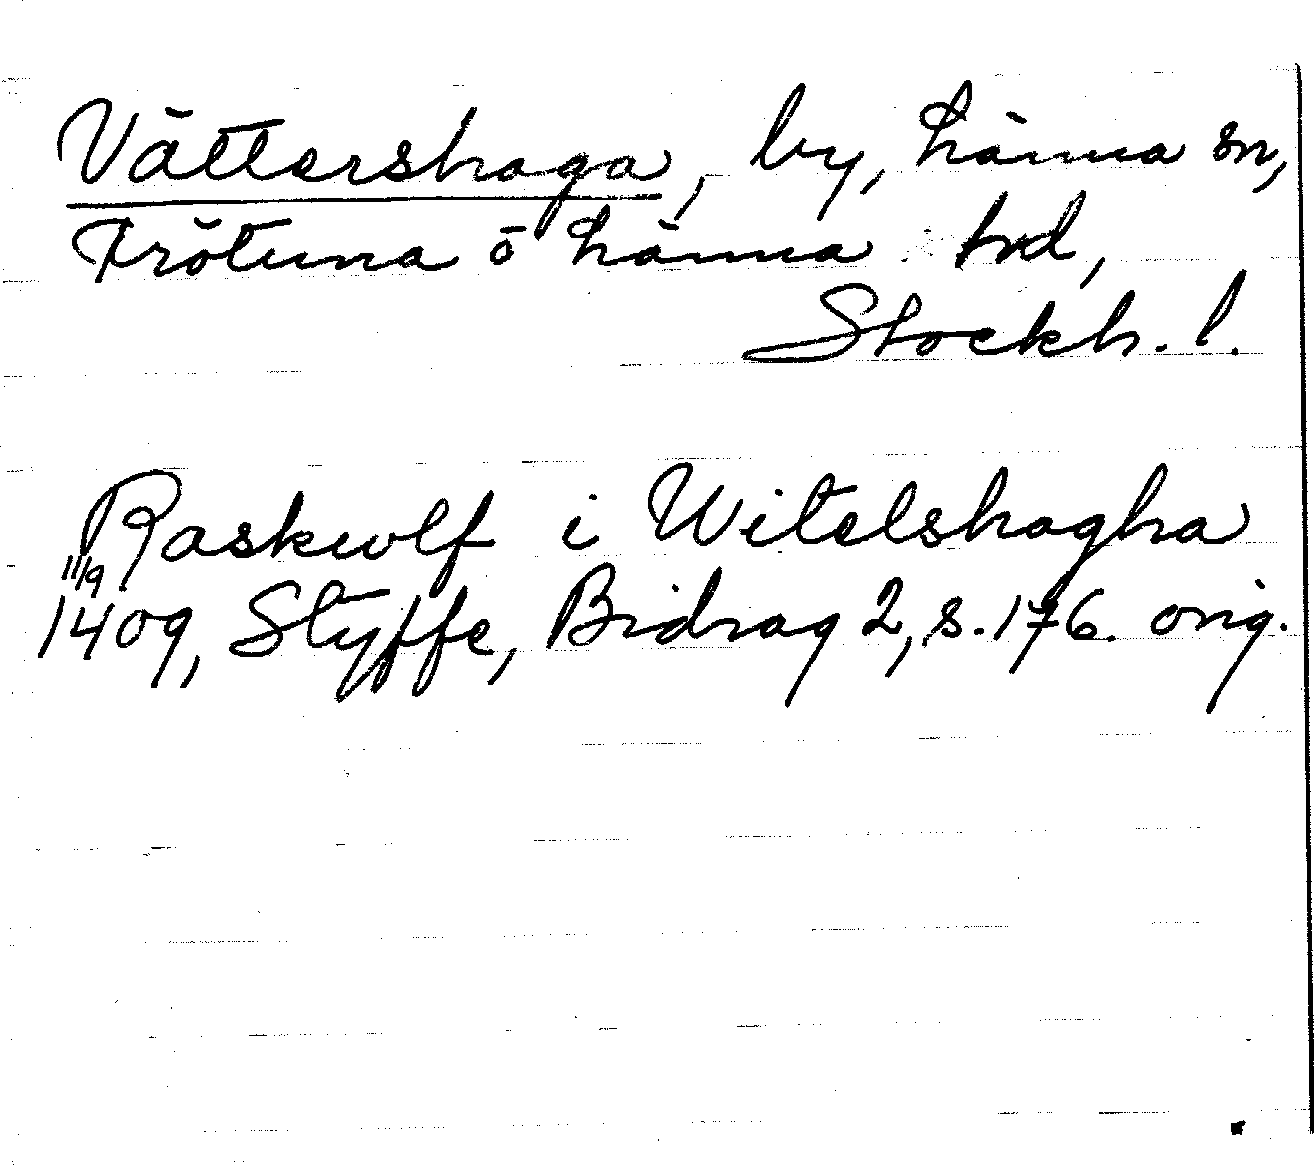 Vättershaga, by, Länna sn,
Frötuna o Länna hd,
Stockh. l.
Raskwlf i Witelshagha
11/9
1409, Styffe, Bidrag 2, s. 176. orig.